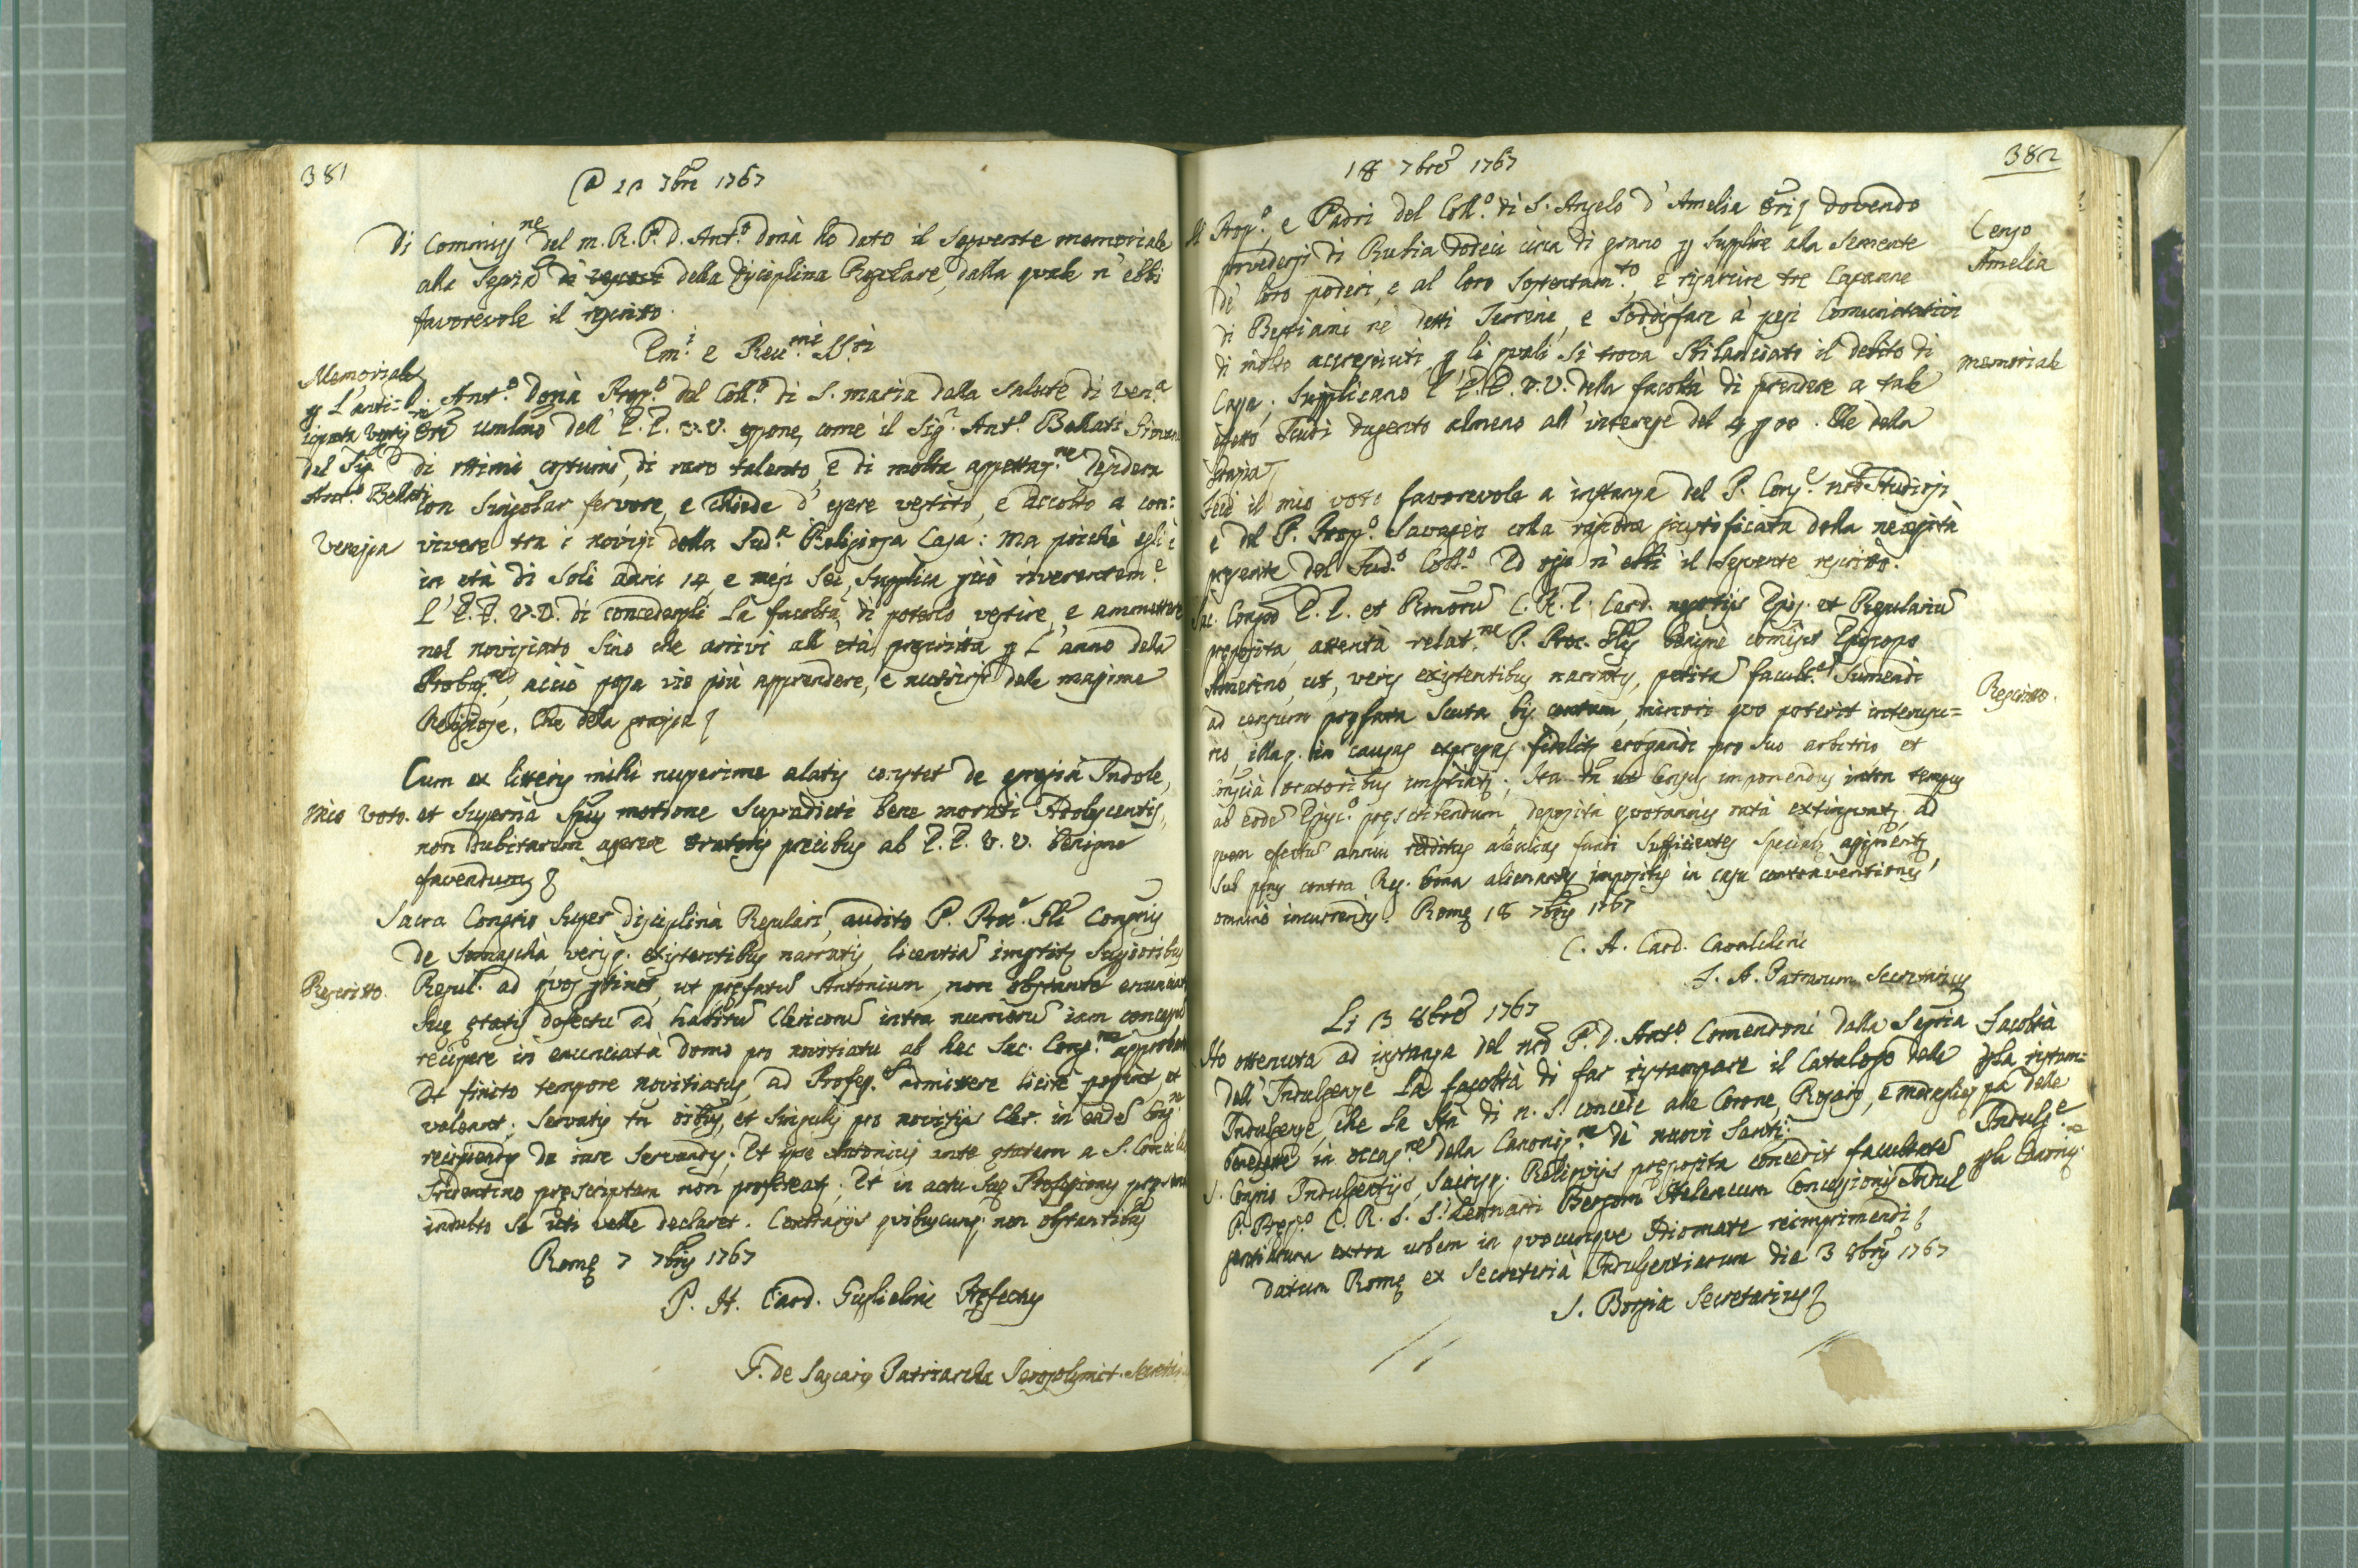 381
A 12 7bre 1767
Di Commiss.ne del m. R. P. D. Ant.o Donà ho dato il seguente memoriale
alla Segria della Disciplina Regolare, dalla quale n'ebbi
favorevole il rescritto.
Em.i e Reu.mi SS.ri
Memoriale
p L'antici=
ipata Vestiz.ne
del Sig.r
Ant.o Bellati
Venezia
D. Ant.o Donà Prep.o del Coll.o di S. Maria dalla Salute di Ven.a
Ore umlmo dell'E.E. V.V. espone, come il Sig.r Ant.o Bellati Giovane
di ottimi costumi, di raro talento, e di molta aspettaz.ne desidera
con singolar fervore, e chiede d'essere vestito, e accolto a con:
vivere tra i novizi della Sud.a Religiosa Casa: Ma poichè egli è
in età di soli anni 14, e mesi sei, supplica pciò riverentem.e
L'E.E. V.V. di concedergli la facoltà di poterlo vestire, e ammettere
nel noviziato sino che arrivi all'età prescritta p L'anno della
Probaz.ne, acciò possa vie più apprendere, e nutrirsi delle massime
Religiose. Che della grazia
Mio Voto.
Cum ex litteris mihi nuperime alatis constet de egregià Indole,
et supernà Spus motione supradicti bene morati Adolescentis,
non dubitarem asserere Oratoris precibus ab E.E. V.V. benigne
favendum
Rescritto.
Sacra Congrio super disciplinà Regulari, audito P. Proc.e Gli Congnis
de Somaschà, verisq. existentibus narratis, licentià impertitr Superioribus
Regul. ad quos ptinet, ut prefatum Antonium, non obstante enunciato
sue etatis defectu ad habitum Clericorum intra numerum iam concessum
recipere in enunciata domo pro novitiatu ab hac Sac. Cong.ne approbata
Et finito tempore novitiatus, ad Profes.em admittere licitè possint et
valeant; servatis tn oibus, et singulis pro novitijs Cler. in eadem Cong.ne
recipiendis de iure servandis; Et ipse Antonius ante etatem a S. Concilio
Tridentino prescriptam non profiteatr; Et in actu sue Professionis presenti
indulto se uti velle declaret. Contrarijs quibuscunq. non obstantibus
Rome 7 7bris 1767
P. H. Card. Guglielmi Prefectus
F. de Pascaris Patriarcha Ierosolymit. Secretarius
382
18 7bre 1767
Censo
Amelia
Il Prep.o, e Padri del Coll.o di S. Angelo d'Amelia Oris dovendo
provedersi di Rubia dodeci circa di grano p supplire alla semente
de' loro poderi, e al loro sostentam.to, e risarcire tre Capanne
di Bestiami ne' detti Terreni, e soddisfare a' pesi Comunitativi
memoriale
di molto accresciuti, p li quali si trova sbilanciato il debito di
Casa; Supplicano l'E.E. V.V. della facoltà di prendere a tale
effetto Scudi dugento almeno all'interesse del 4 p 00. Che della
Grazia
Feci il mio voto favorevole a instanza del P. Cons.e nro Studiosi
e del P. Prep.o Savageri colla riprova giustificata della necessità
presente del Sud.o Coll.o Ed oggi n'ebbi il seguente rescritto.
Rescritto.
Sac. Congrio E.E. et Rmorum S. R. E. Card. negotijs Epis. et Regularium
preposita, attentà relat.ne P. Proc. Glis benignè comisit Episcopo
Amerino, ut, veris existentibus narratis, petitam facult.em sumendi
ad censum prefata Scuta bis centum, minori quo poterit interusu=
rio, illaq. in causas expressas fidelitr erogandi pro suo arbitrio et
conscià oratoribus impertiatr; Ita tn ut Census imponendus intra tempus
ab eodem Episc.o prescribendum, deposità quotannis ratà extinguatr, ad
quem efectum annui redditus alicuius fundi sufficientes specialr assignentr,
sub penis contra Reg. bona alienantes impositis in casu contraventionis
omnino incurrendis. Rome 18 7bris 1767
C. A. Card. Cavalchini
I. A. Patrarum Secretarius
Li 3 8bre 1767
Facoltà
p la ristam=
pa delle
Indulg.e
p la Canoniz.ne
Ho ottenuta ad instanza del nro P. D. Ant.o Comendoni dalla Segria
dell'Indulgenze la facoltà di far ristampare il Catalogo delle
Indulgenze, che la Stà di N. S. concede alle Corone, Rosarj, e medaglie
benedette in occas.ne della Canoniz.ne de' nuovi Santi.
S. Congrio Indulgentijs, Sacrisq. Reliquijs preposita concedit facultatem
P. Prep.o C. R. S. S. Leonardi Bergomi Elencum Concessionis Indul
gentiarum extra urbem in quocunque Idiomate reimprimendi
Datum Rome ex Secreterià Indulgentiarum die 3 8bris 1767
S. Borgia Secretarius